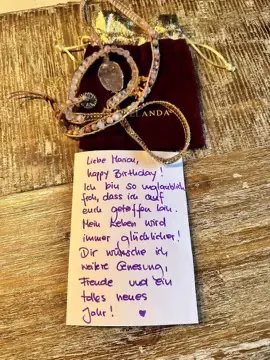 LANDA
Liebe Manon,
happy Birthday!
Ich bin so unglaublich
froh, dass ich auf
euch getroffen bin.
Mein Leben wird
immer glücklicher!
Dir wünsche ich
weitere Genesung,
Freude und ein
tolles neues
Jahr! ♥